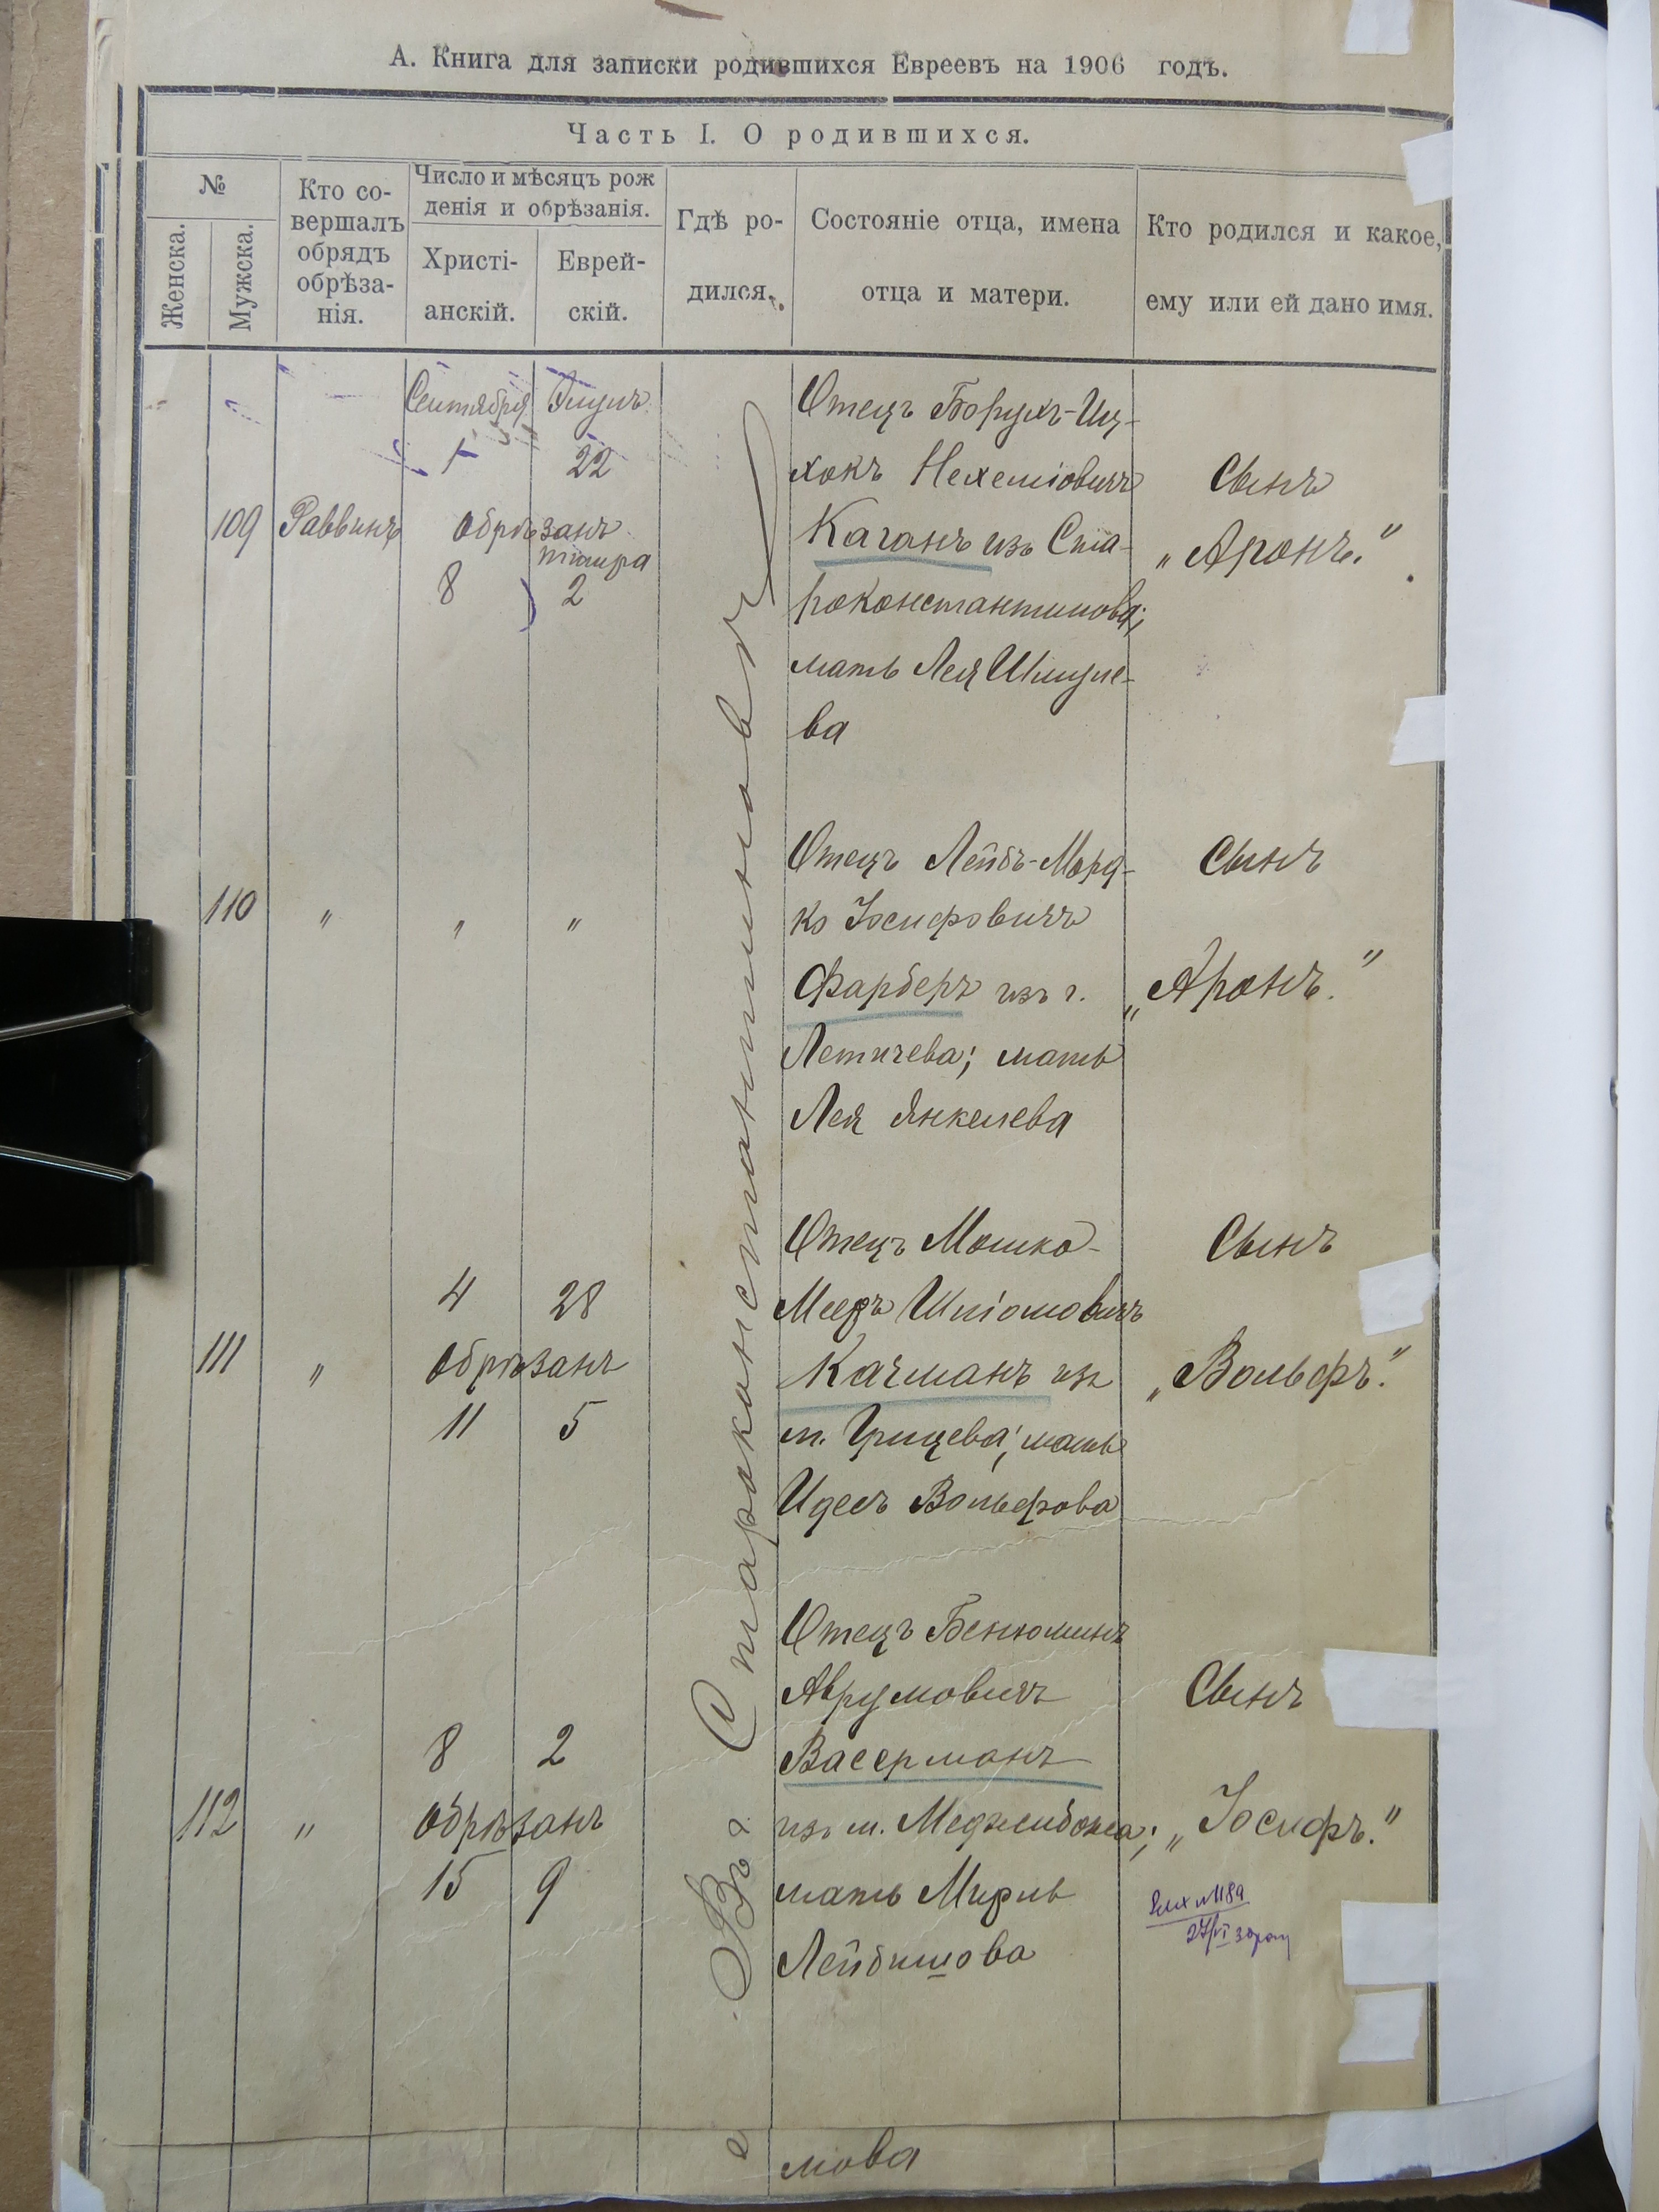 А. Книга для записки родившихся Евреевъ на 1906 годъ.
Часть I. О родившихся.
№
Женска.
Мужска.
Кто со-
вершалъ
обрядъ
обрѣза-
нія.
Число и мѣсяцъ рож
денія и обрѣзанія.
Христі-
анскій.
Еврей-
скій.
Гдѣ ро-
дился.
Состояніе отца, имена
отца и матери.
Кто родился и какое,
ему или ей дано имя.
Сентября Элулъ
1 22
109 Раввинъ обрѣзанъ
тишра
8 2
Отецъ Борухъ-Иц-
хокъ Нехеміовичъ
Каганъ изъ Ста-
роконстантинова;
мать Лея Шмуле-
ва
Сынъ
„Аронъ."
Въ г. Староконстантиновѣ
110 " " "
Отецъ Лейбъ-Морд-
ко Іосифовичъ
Фарберъ изъ г.
Летичева; мать
Лея Янкелева
Сынъ
„Аронъ."
4 28
111 " обрѣзанъ
11 5
Отецъ Мошко-
Мееръ Шліомовичъ
Качманъ изъ
м. Грицева; мать
Идесъ Вольфова
Сынъ
„Вольфъ."
8 2
112 " обрѣзанъ
15 9
Отецъ Бенюминъ
Аврумовичъ
Васерманъ
изъ м. Меджибожа;
мать Мирль
Лейбишова
Сынъ
„Іосифъ."
мова